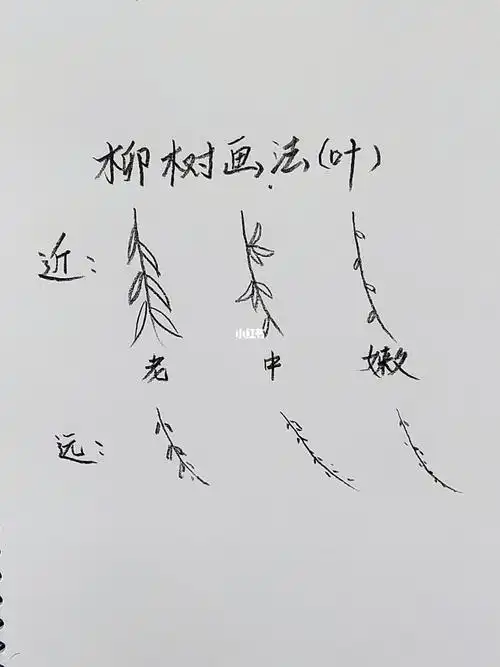 柳树画法(叶)
近:
小红书
老 中 嫩
远: